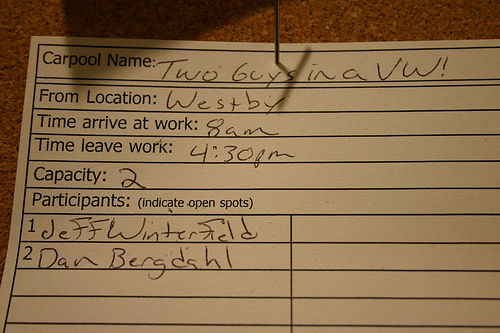 Carpool Name: Two Guys in a VW!
From Location: Westby
Time arrive at work: 8am
Time leave work: 4:30pm
Capacity: 2
Participants: (indicate open spots)
1 Jeff Winterfield
2 Dan Bergdahl